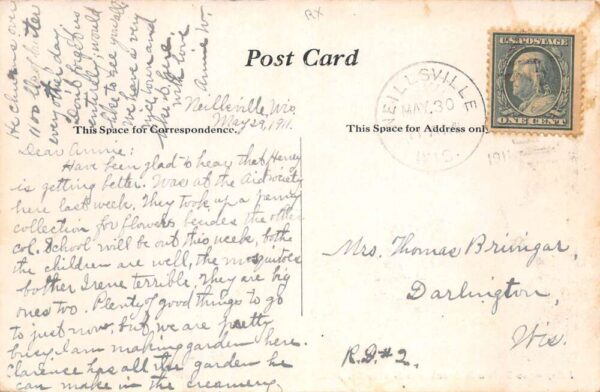 Post Card
This Space for Correspondence.
This Space for Address only
U.S. POSTAGE
ONE CENT
NEILLSVILLE
MAY 30
WIS.
Neillsville, Wis
May 29, 1911.
Dear Annie:
Have been glad to hear that Henry
is getting better. Was at the Aid society
here last week. They took up a penny
collection for flowers besides the other
col. School will be out this week, both
the children are well, the mosquitoes
bother Irene terrible, They are big
ones too. Plenty of good things to go
to just now, but we are pretty
busy. I am making garden here.
Clarence has all the garden he
can make in the creamery
He churns over
1100 lbs of butter
every other day.
Don't forget us
entirely, would
like to see yourself
we have a very
and
with love
Annie W.
Mrs. Thomas
Darlington,
Wis.
R.D.#2.